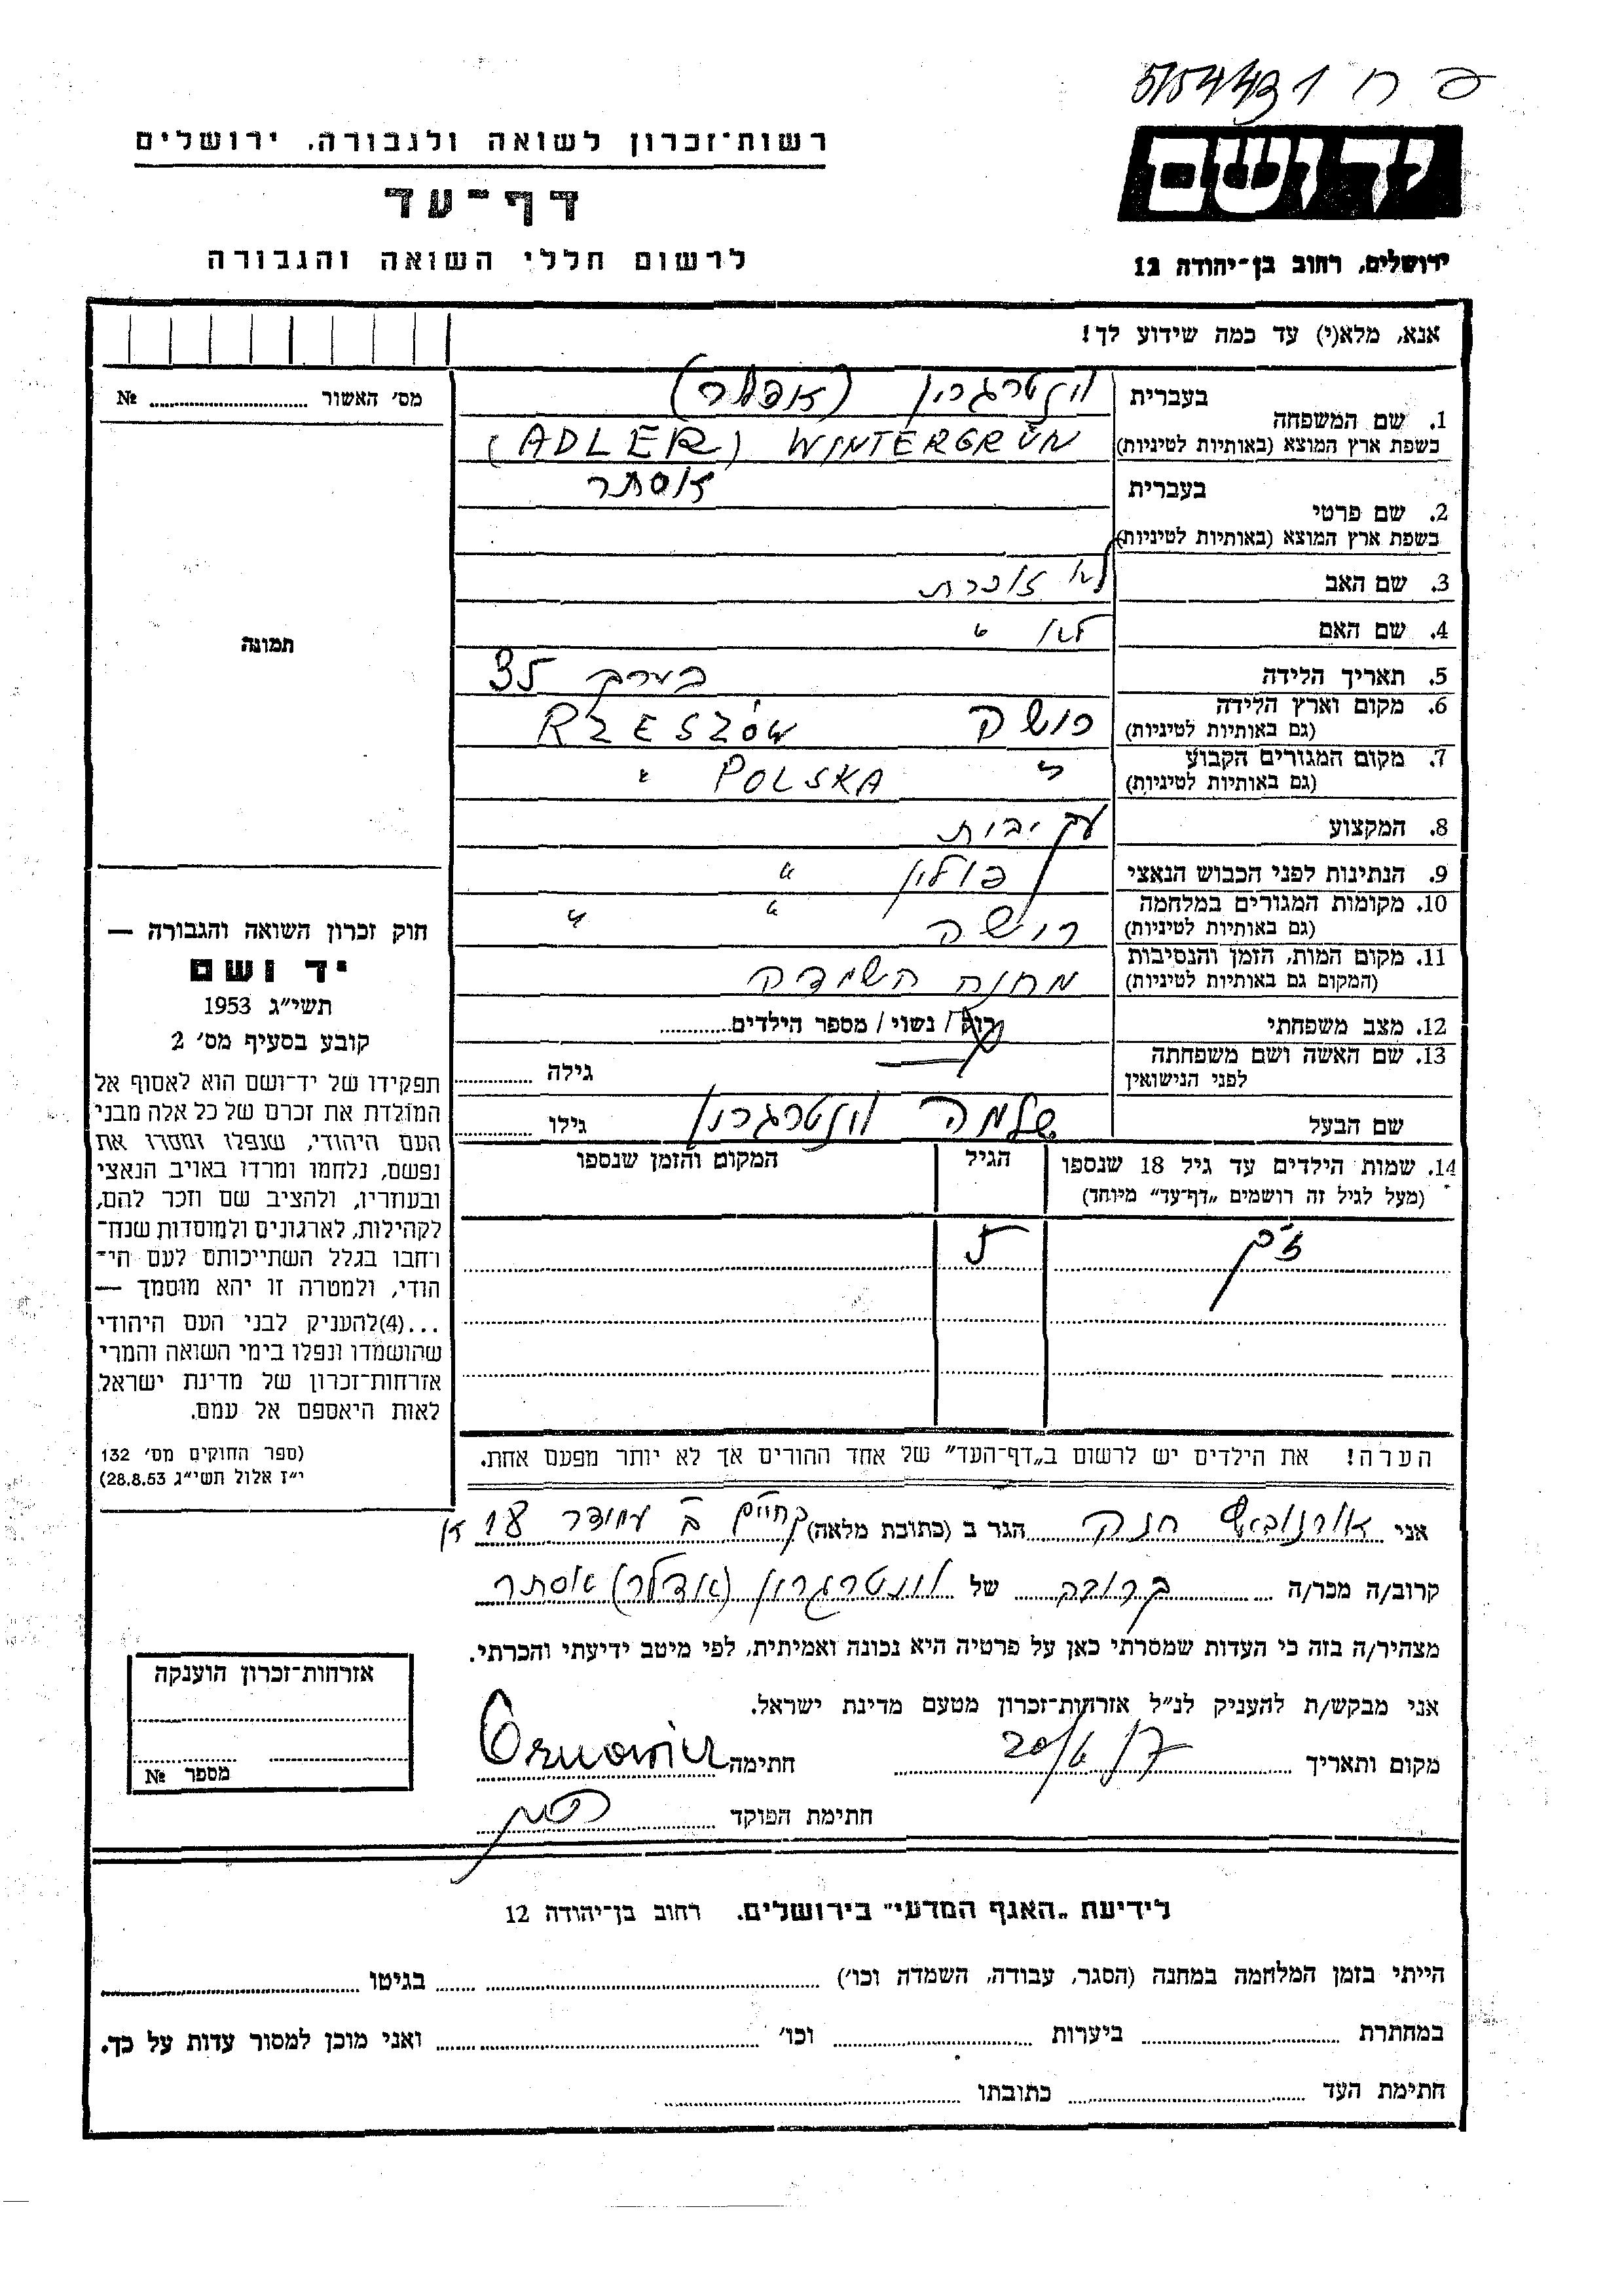 5/54431 ח פ
רשות־זכרון לשואה ולגבורה, ירושלים
יד ושם
דף־עד
לרשום חללי השואה והגבורה
ירושלים, רחוב בן־יהודה 12
אנא, מלא(י) עד כמה שידוע לך!
מס׳ האשור № 
1. שם המשפחה
בעברית וינטרגרין (אדלר)
בשפת ארץ המוצא (באותיות לטיניות) WINTERGRÜN (ADLER)
2. שם פרטי
בעברית אסתר
בשפת ארץ המוצא (באותיות לטיניות)
3. שם האב לא זוכרת
4. שם האם לא "
5. תאריך הלידה בערך 35
6. מקום וארץ הלידה RZESZÓW
(גם באותיות לטיניות)
7. מקום המגורים הקבוע " POLSKA "
(גם באותיות לטיניות)
8. המקצוע עק יבית
9. הנתינות לפני הכבוש הנאצי פולין "
10. מקומות המגורים במלחמה " "
(גם באותיות לטיניות)
11. מקום המות, הזמן והנסיבות מחנה השמדה
(המקום גם באותיות לטיניות)
12. מצב משפחתי רוק / נשוי / מספר הילדים
13. שם האשה ושם משפחתה
לפני הנישואין
גילה
שם הבעל שלמה וינטרגרין גילו
14. שמות הילדים עד גיל 18 שנספו הגיל המקום והזמן שנספו
(מעל לגיל זה רושמים „דף־עד” מיוחד)
5
תמונה
חוק זכרון השואה והגבורה —
יד ושם
תשי״ג 1953
קובע בסעיף מס׳ 2
תפקידו של יד־ושם הוא לאסוף אל
המולדת את זכרם של כל אלה מבני
העם היהודי, שנפלו ומסרו את
נפשם, נלחמו ומרדו באויב הנאצי
ובעוזריו, ולהציב שם וזכר להם,
לקהילות, לארגונים ולמוסדות שנח־
רחבו בגלל השתייכותם לעם הי־
הודי, ולמטרה זו יהא מוסמך —
...(4)להעניק לבני העם היהודי
שהושמדו ונפלו בימי השואה והמרי
אזרחות־זכרון של מדינת ישראל
לאות היאספם אל עמם.
(ספר החוקים מס׳ 132
י״ז אלול תשי״ג 28.8.53)
הערה! את הילדים יש לרשום ב„דף־העד” של אחד ההורים אך לא יותר מפעם אחת.
אני חנה הגר ב (כתובת מלאה) 18
קרוב/ה מכר/ה קרובה של וינטרגרין (אדלר) אסתר
מצהיר/ה בזה כי העדות שמסרתי כאן על פרטיה היא נכונה ואמיתית, לפי מיטב ידיעתי והכרתי.
אני מבקש/ת להעניק לנ״ל אזרחות־זכרון מטעם מדינת ישראל.
מקום ותאריך חתימה
חתימת הפוקד
אזרחות־זכרון הוענקה
מספר №
לידיעת „האגף המדעי” בירושלים. רחוב בן־יהודה 12
הייתי בזמן המלחמה במחנה (הסגר, עבודה, השמדה וכו׳) בגיטו
במחתרת ביערות וכו׳ ואני מוכן למסור עדות על כך.
חתימת העד כתובתו